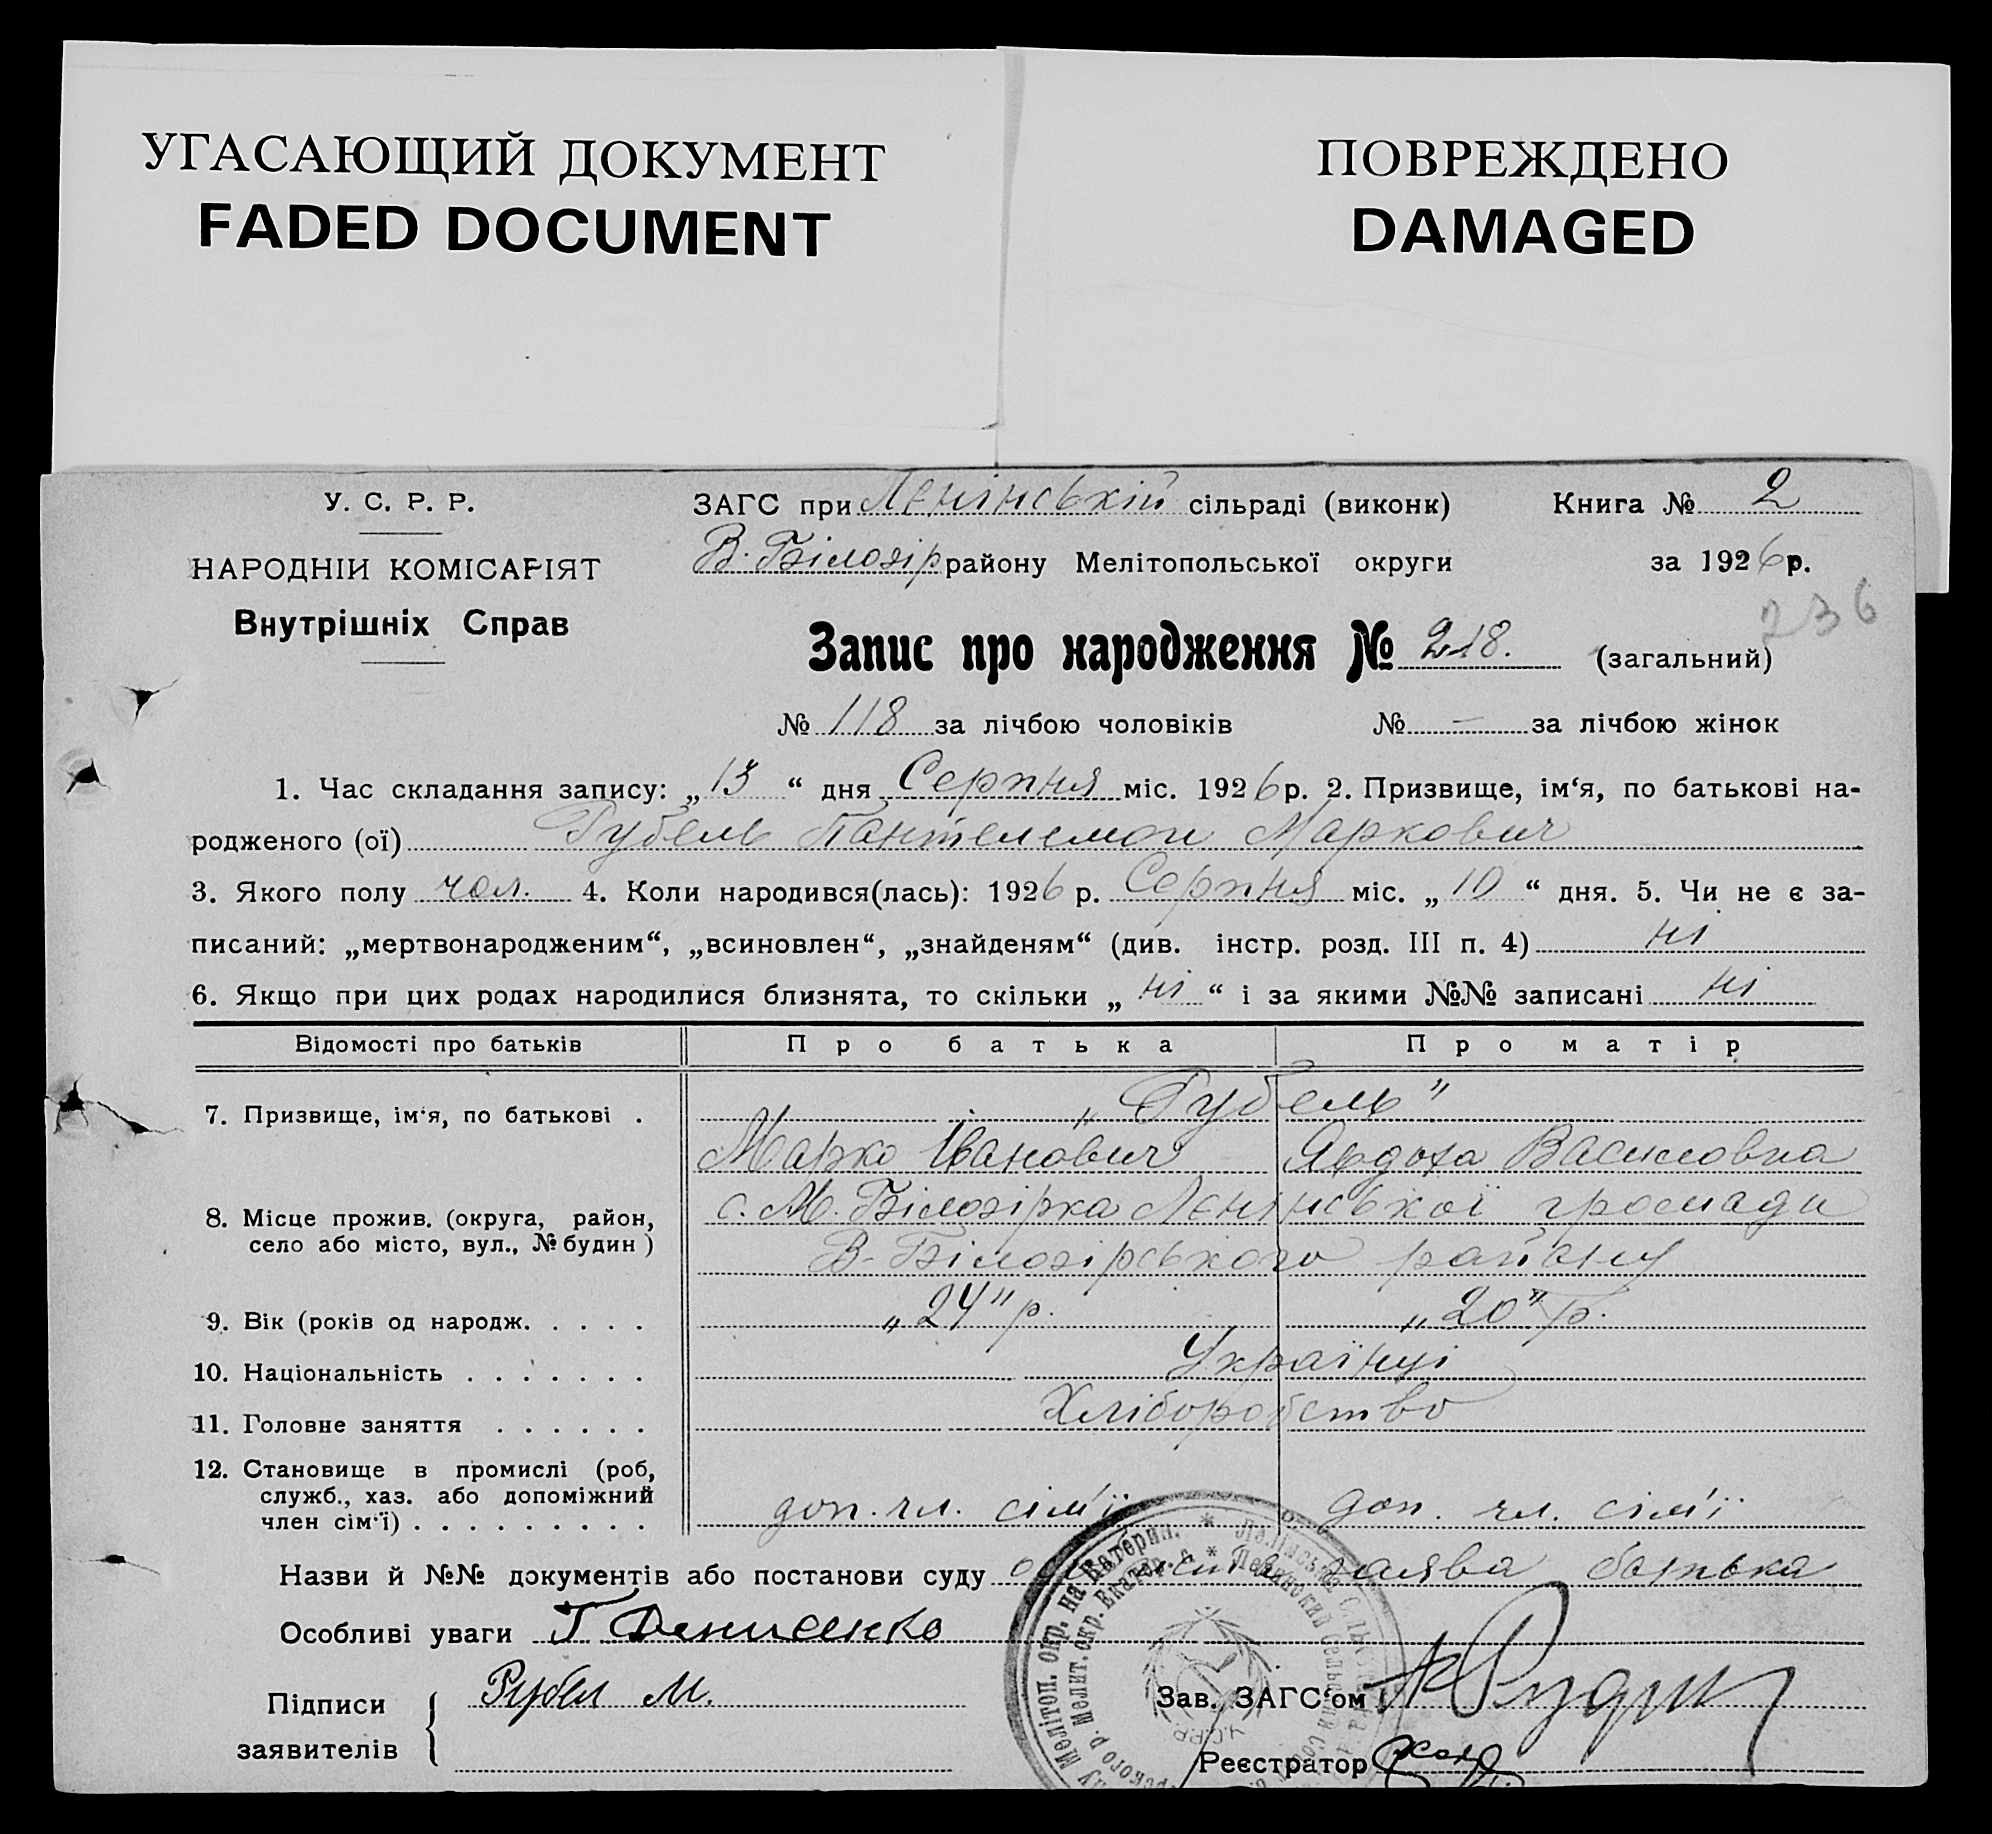 УГАСАЮЩИЙ ДОКУМЕНТ
FADED DOCUMENT
ПОВРЕЖДЕНО
DAMAGED
У. С. Р. Р.
НАРОДНІЙ КОМІСАРІЯТ
Внутрішніх Справ
ЗАГС при Ленінській сільраді (виконк) Книга № 2
В. Білозір району Мелітопольської округи за 1926 р.
236
Запис про народження № 218. (загальний)
№ 118 за лічбою чоловіків № — за лічбою жінок
1. Час складання запису: „13“ дня Серпня міс. 1926 р. 2. Призвище, ім‘я, по батькові на-
родженого (ої) Рубель Пантелемон Маркович
3. Якого полу чол. 4. Коли народився(лась): 1926 р. Серпня міс. „10“ дня. 5. Чи не є за-
писаний: „мертвонародженим“, „всиновлен“, „знайденям“ (див. інстр. розд. III п. 4) ні
6. Якщо при цих родах народилися близнята, то скільки „ні“ і за якими №№ записані ні
Відомості про батьків Про батька Про матір
7. Призвище, ім‘я, по батькові . „Рубель”
Марко Іванович Явдоха Василовна
8. Місце прожив. (округа, район, с. М. Білозірка Ленінської громади
село або місто, вул., № будин) В-Білозірського району
9. Вік (років од народж. . . . . „24” р. „20” р.
10. Національність . . . . . . . Українці
11. Головне заняття . . . . . . Хліборобство
12. Становище в промислі (роб,
служб., хаз. або допоміжний
член сім‘ї) . . . . . . . . . доп. чл. сім'ї доп. чл. сім'ї
Назви й №№ документів або постанови суду заява батька
Особливі уваги Т Денисенко
Підписи Рубел М. Зав. ЗАГС‘ом
заявителів Реєстратор
Мелітоп. окр. на Катерин. * Ленінська
Мелит. окр. Екатер. * Ленинский
У.С.Р.Р.